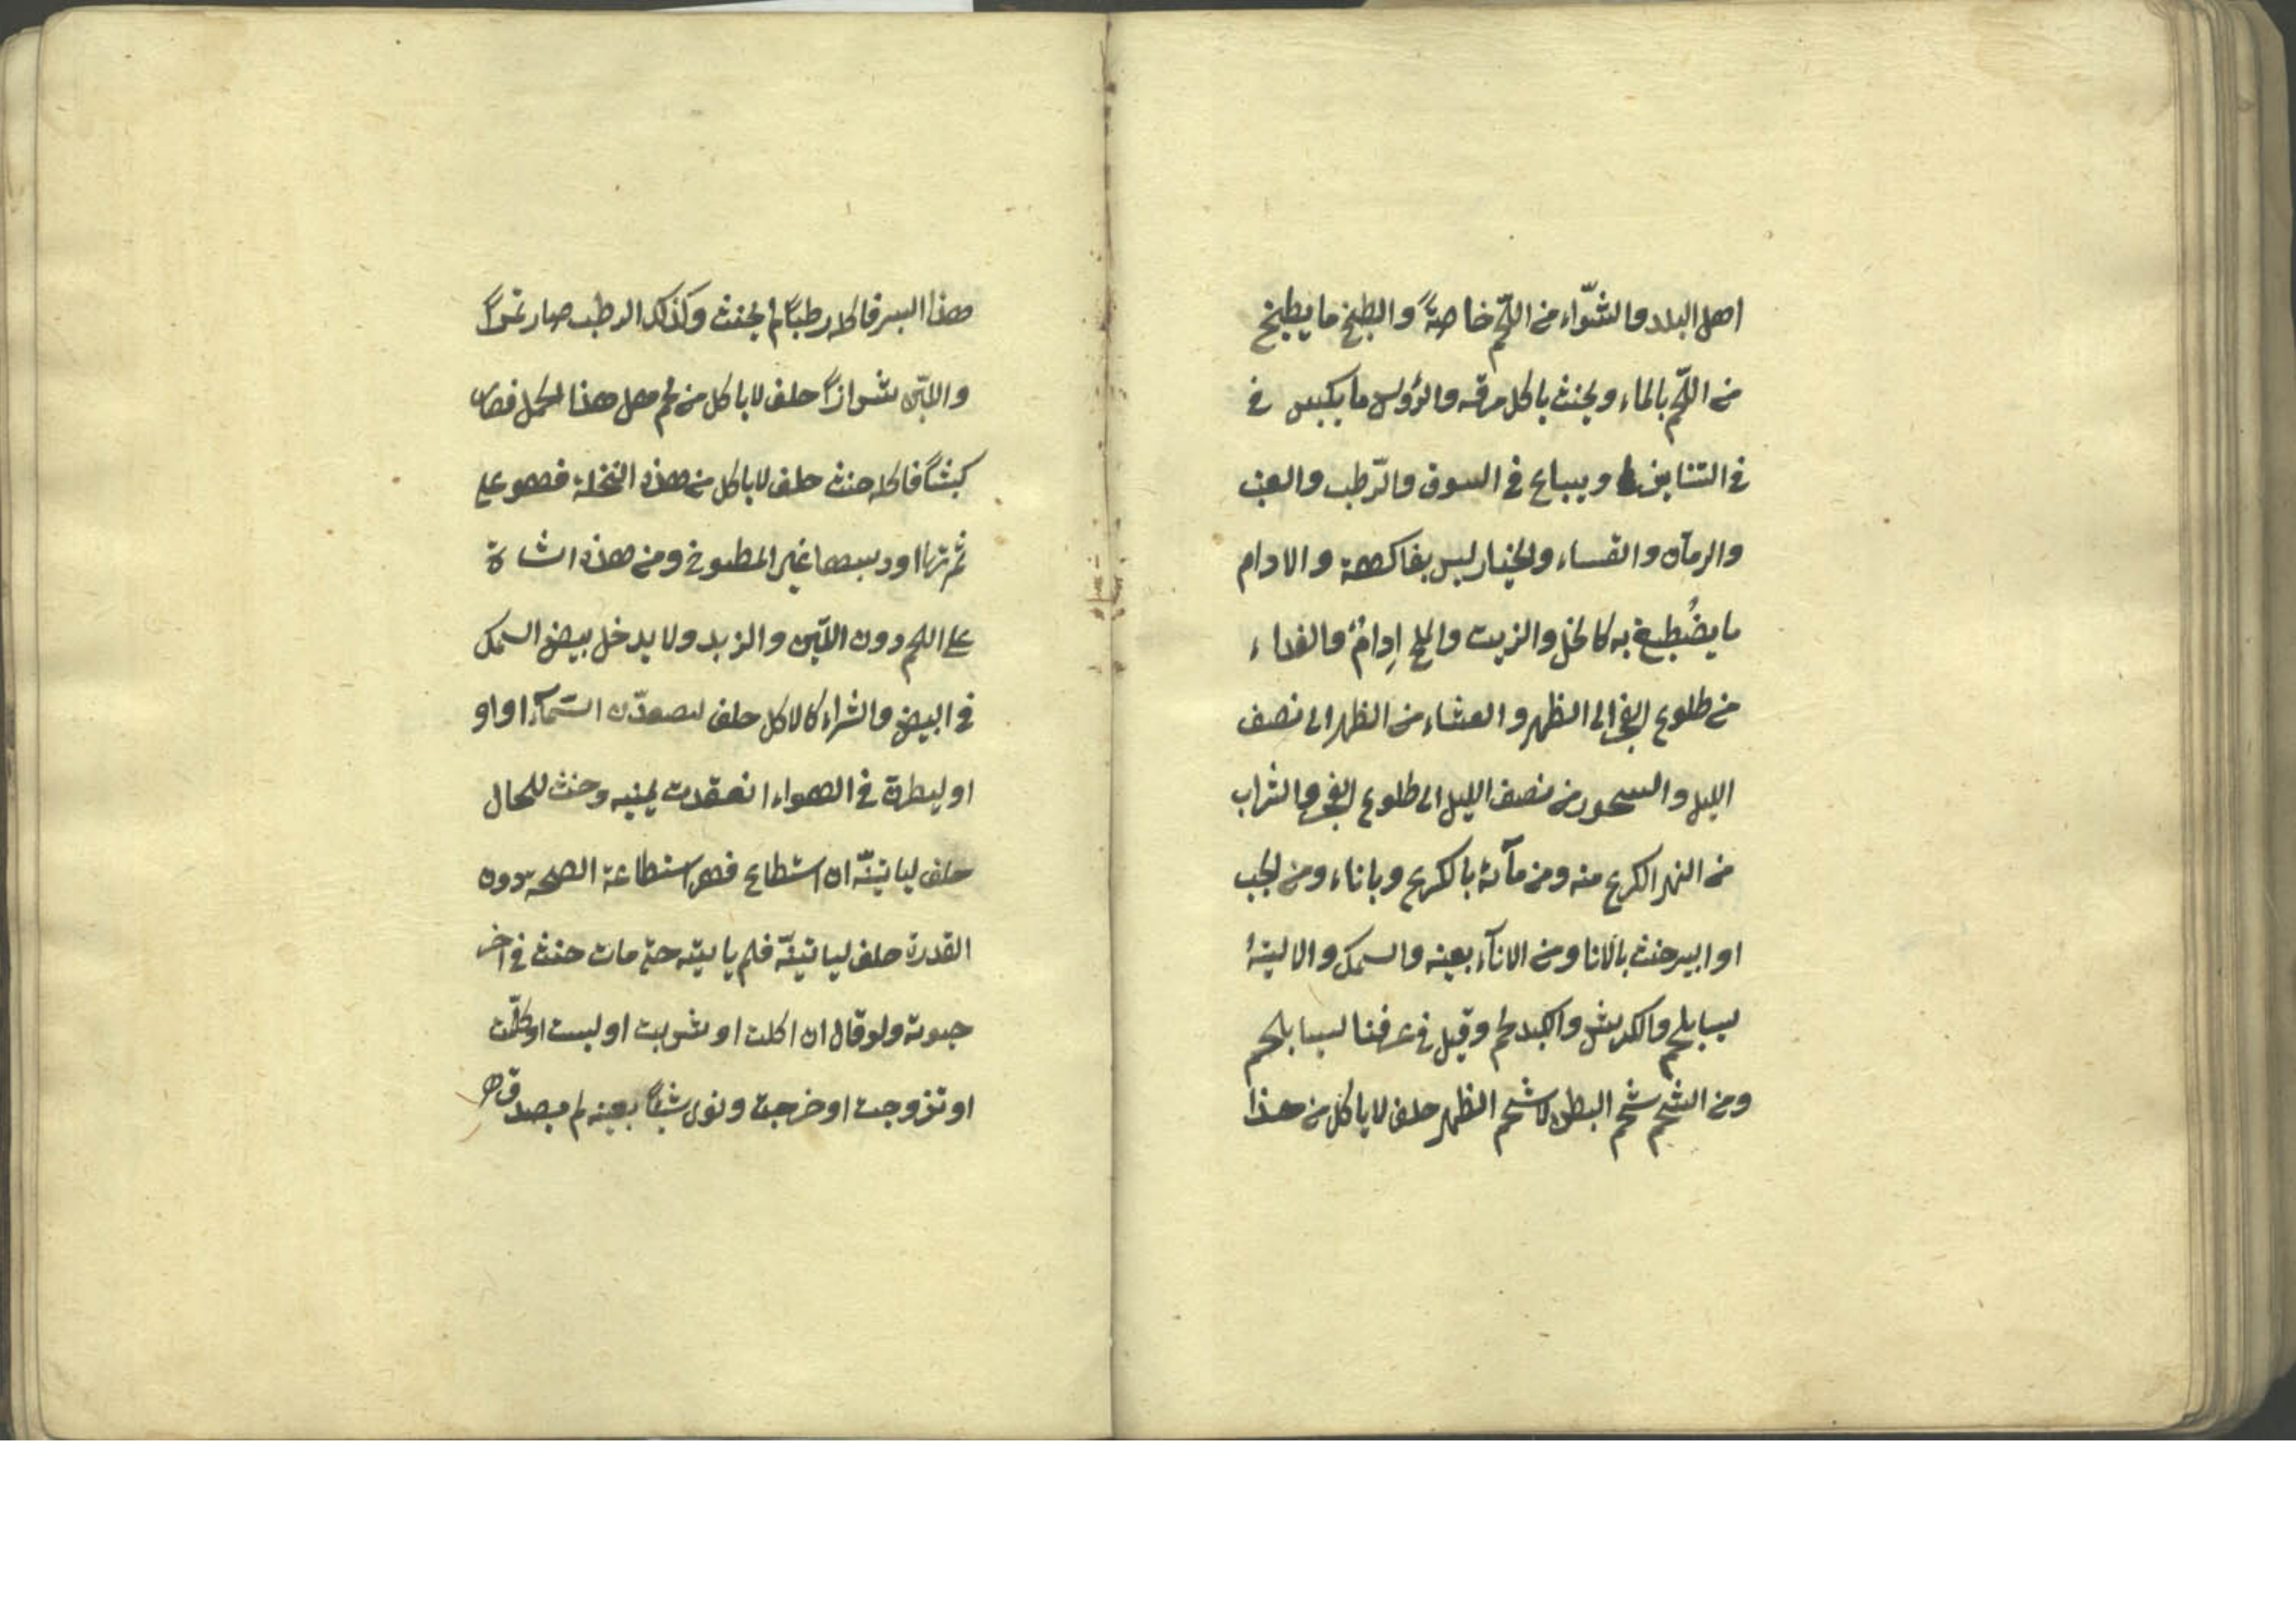 اهل البلد والشّواء من اللّحم خاصةً والطبخ ما يطبخ
من اللّحم بالماء ويحنث باكل مرقه والرؤس ما يكبس في
في التنانير ويباع في السوق والرّطب والعنب
والرمان والقساء والخيار ليس بفاكهة والادام
ما يصُطبغ به كالخل والزيت والملح اِدامٌ والغداء
من طلوع الفجر الى الظهر والعشاء من الظهر الى نصف
الليل والسحور من نصف الليل الى طلوع الفجر والشراب
من النهر الكرع منه ومن مآئه بالكرع وباناء ومن الجب
او البير حنث بالانا ومن الانآء بعينه والسمك والالية
ليسا بلحم والكرش والكبد لحم وقيل في عرفنا ليسا بلحم
ومن الشحم شحم البطن لا شحم الظهر حلف لا ياكل من هذا
هذا البسر فاكله رطباً لم يحنث وكذلك الرطب صار تمراً
واللبن شيرازاً حلف لا ياكل من لحم هل هذا الحمل فصار
كبشاً فاكله حنث حلف لا ياكل من هذه النخلة فهو على
ثمرتها او دبسها غير المطبوخ ومن هذه الشاة
على اللحم دون اللبن والزبد ولا يدخل بيض السمك
في البيض والشراء كالاكل حلف ليصعدّن السّمآء او او
او ليطيرن في الهواء انعقدت يمينه وحنث للحال
حلف لياتينّه ان استطاع فهو استطاعة الصحة دون
القدرة حلف لياتينّه فلم ياتيه حتى مات حنث في آخر
حيوته ولو قال ان اكلت او شربت او لبست او كلّمت
او تزوجت او خرجت ونوى شيئاً بعينه لم يصدق